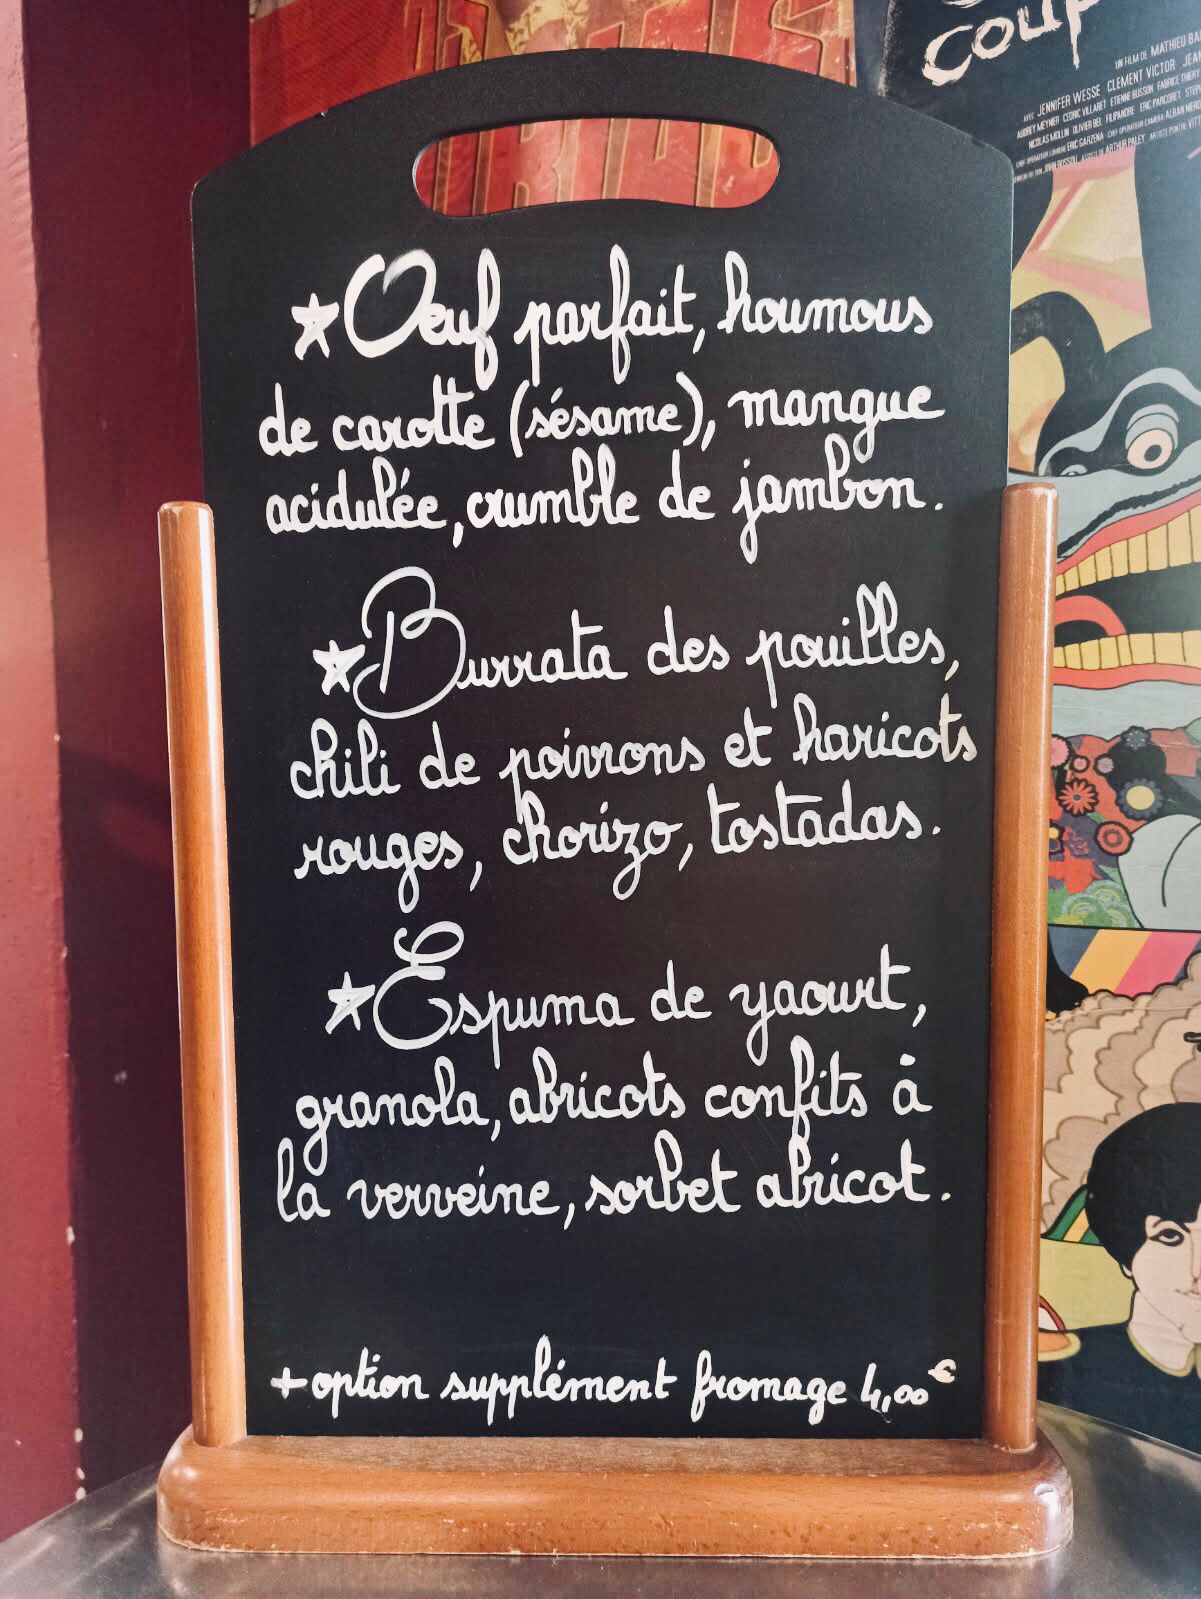 COUP
UN FILM DE MATHIEU
AVEC JENNIFER WESSE CLEMENT VICTOR
AUDREY MEYNIER CEDRIC VILLABET ETIENNE BUSSON FABRICE
NICOLAS MOLLIN OLIVIER BEL FILIPANDRE ERIC PARCOREY
CHEF OPERATEUR LUMIERE ERIC GARZENA CHEF OPERATEUR CAMERA ALBAN
★Oeuf parfait, houmous
de carotte (sésame), mangue
acidulée, crumble de jambon.
★Burrata des pouilles,
chili de poivrons et haricots
rouges, chorizo, tostadas.
★Espuma de yaourt,
granola, abricots confits à
la verveine, sorbet abricot.
+ option supplément fromage 4,00€